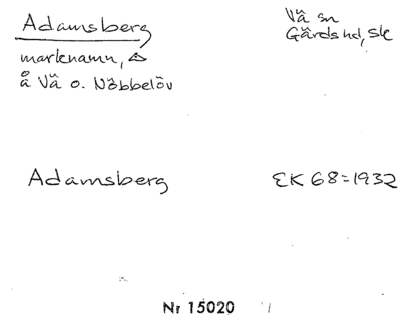 Adamsberg
Vä sn
Gärds hd, Sk
marknamn,
å Vä o. Nöbbelöv
Adamsberg
EK 68=1932
Nr 15020